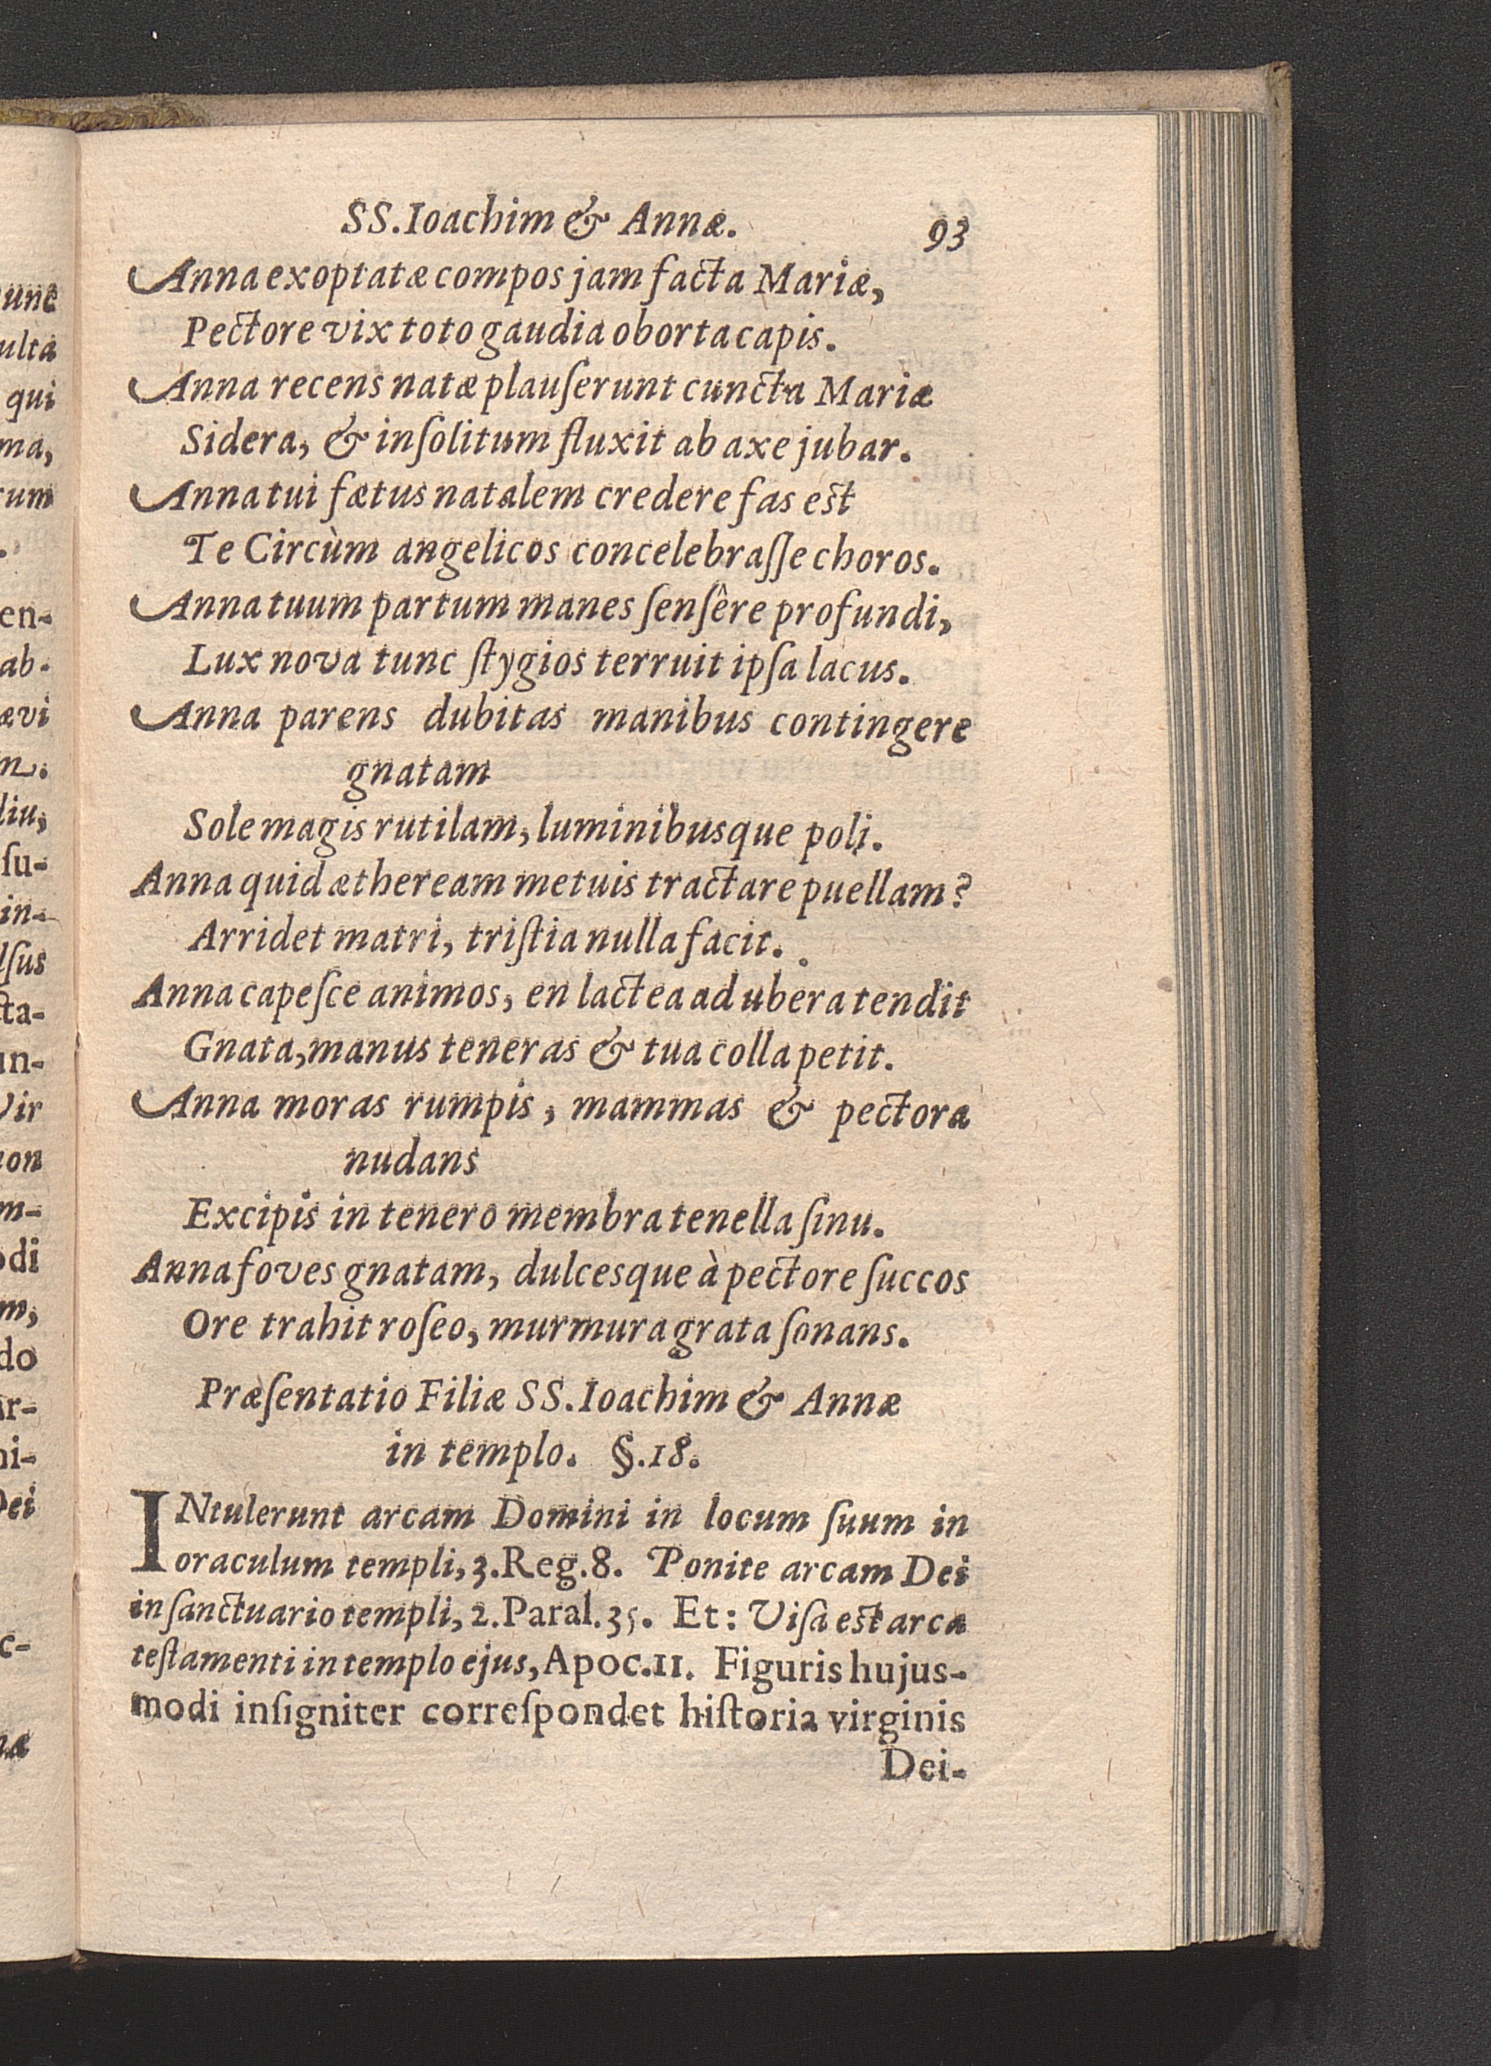 SS. Ioachim & Annæ. 93
Anna exoptatæ compos jam facta Mariæ,
Pectore vix toto gaudia oborta capis.
Anna recens natæ plauſerunt cuncta Mariæ
Sidera, & inſolitum fluxit ab axe jubar.
Anna tui fætus natalem credere fas est
Te Circùm angelicos concelebraſſe choros.
Anna tuum partum manes ſenſêre profundi,
Lux nova tunc ſtygios terruit ipſa lacus.
Anna parens dubitas manibus contingere
gnatam
Sole magis rutilam, luminibusque poli.
Anna quid ætheream metuis tractare puellam?
Arridet matri, triſtia nulla facit.
Anna capeſce animos, en lactea ad ubera tendit
Gnata, manus teneras & tua colla petit.
Anna moras rumpis, mammas & pectora
nudans
Excipis in tenero membra tenella ſinu.
Anna foves gnatam, dulcesque à pectore ſuccos
Ore trahit roſeo, murmura grata ſonans.
Præſentatio Filiæ SS. Ioachim & Annæ
in templo. §. 18.
INtulerunt arcam Domini in locum ſuum in
oraculum templi, 3. Reg. 8. Ponite arcam Dei
in ſanctuario templi, 2. Paral. 35. Et: Viſa est arca
teſtamenti in templo ejus, Apoc. 11. Figuris hujus-
modi inſigniter correſpondet hiſtoria virginis
Dei-